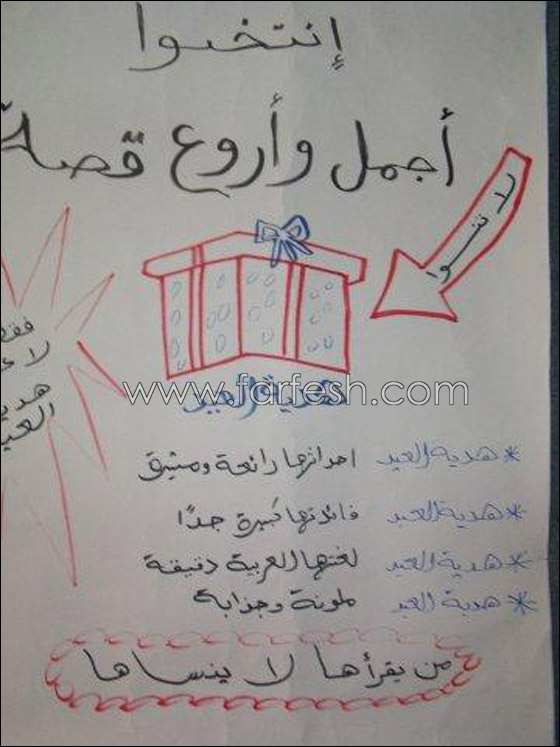 إنتخبوا
أجمل وأروع قصة
لا تنسوا
www.farfesh.com
هدية العيد
* هدية العيد احداثها رائعة ومشيقة
* هدية العيد فائدتها كبيرة جدًا
* هدية العيد لغتها العربية دقيقة
* هدية العيد ملونة وجذابة
من يقرأها لا ينساها
فقط
لا
هدية
العيد